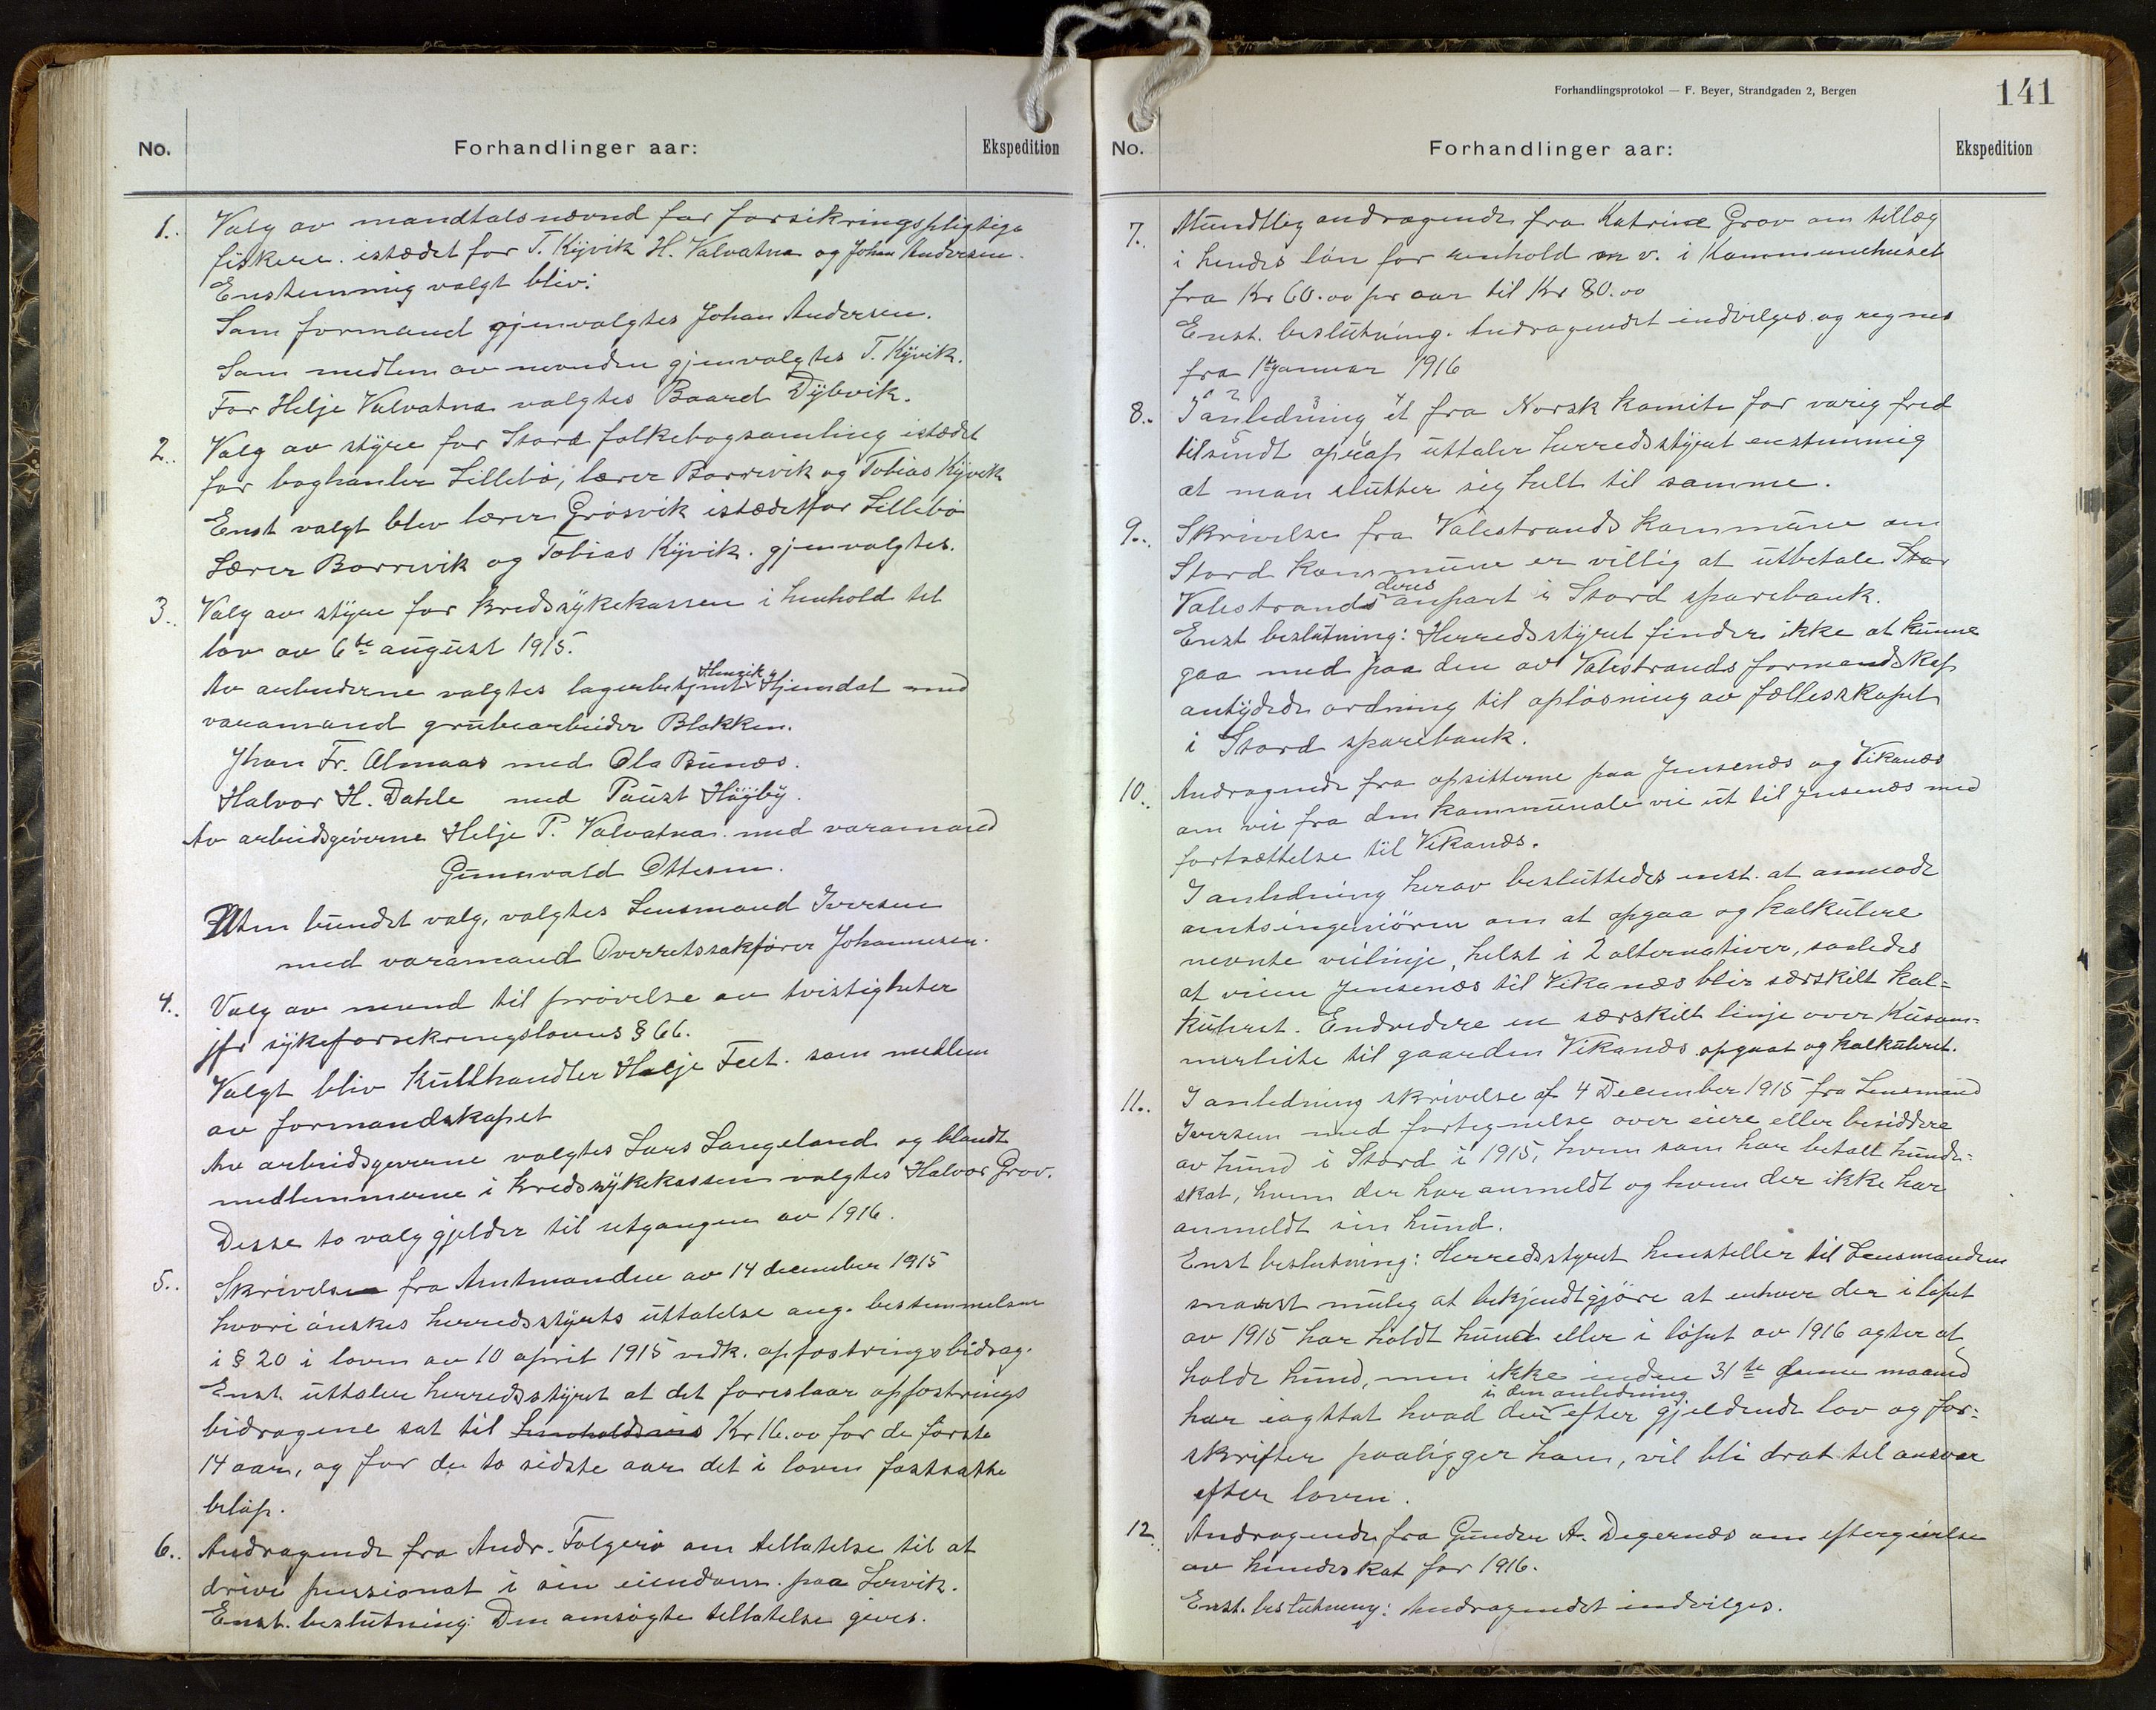 No. Forhandlinger aar: Ekspedition
1. Valg av mandtalsnævnd for forsikringspligtige
fiskere. istædet for T. Kyvik H. Valvatna og Johan Andersen.
Enstemmig valgt blev:
Som formand gjenvalgtes Johan Andersen.
Som medlem av nevnden gjenvalgtes T. Kyvik.
For Helje Valvatna valgtes Baard Dybvik.
2. Valg av styre for Stord folkebogsamling istædet
for boghanler Lillebö, lærer Borrevik og Tobias Kyvik
Enst valgt blev lærer Grösvik istædetfor Lillebö
Lærer Borrevik og Tobias Kyvik. gjenvalgtes.
3. Valg av styre for kredssykekassen i henhold til
lov av 6te august 1915.
Av arbeiderne valgtes lagerbetjent Henrik Hjemdal med
varamand grubearbeider Blokken.
Johan Fr. Almaas med Ola Bunæs.
Halvor H. Dahle med Paust Höyby.
Av arbeidsgiverne Helje P. Valvatna. med varamand
Gunnvald Ottesen.
Uten bundet valg, valgtes Lensmand Iversen
med varamand Overretssakförer Johannesen.
4. Valg av nevnd til prövelse av tvistigheter
jfr sykeforsekringslovens § 66.
Valgt blev Kullhandler Helje Feet. som medlem
av formandskapet
Av arbeidsgeverne valgtes Lars Langeland og blandt
medlemmerne i kredssykekassen valgtes Halvor Grov.
Disse to valg gjelder til utgangen av 1916.
5. Skrivelse fra Amtmanden av 14 december 1915
hvori önskes herredsstyrets uttalelse ang. bestemmelsen
i § 20 i loven av 10 april 1915 vedk. opfostringsbidrag.
Enst. uttaler herredsstyret at det foreslaar opfostrings
bidragene sat til henholdsvis Kr 16.00 for de förste
14 aar, og for de to sidste aar det i loven fastsatte
belöp.
6. Andragende fra Andr. Folgerö om tellatelse til at
drive pensionat i sin eiendom. paa Lervik.
Enst. beslutning: Den omsögte tellatelse gives.
Forhandlingsprotokol — F. Beyer, Strandgaden 2, Bergen
141
No. Forhandlinger aar: Ekspedition
7. Mundtlig andragende fra Katrine Grov om tillæg
i hendes lön for renhold m v. i Kommunehuset
fra Kr 60.00 pr aar til Kr 80.00
Enst. beslutning. Andragendet indvilges og regnes
fra 1te januar 1916
8. I anledning et fra Norsk komite for varig fred
tilsendt oprop uttaler herredsstyret enstemmig
at man slutter sig helt til samme.
9. Skrivelse fra Valestrands kommune om
Stord kommune er villig at utbetale Stor
Valestrands deres anpart i Stord sparebank.
Enst beslutning: Herredsstyret finder ikke at kunne
gaa med paa den av Valestrands formandskap
antydede ordning til oplösning av fællesskapet
i Stord sparebank.
10. Andragende fra opsitterne paa Jensenæs og Vikanæs
om vei fra den kommunale vei ut til Jensenæs med
fortsættelse til Vikanæs.
I anledning herav besluttedes enst. at anmode
amtsingeniören om at opgaa og kalkulere
nevnte veilinje, helst i 2 alternativer, saaledes
at veien Jensenæs til Vikanæs blir særskilt kal=
kulert. Endvidere en særskilt linje over
til gaarden Vikanæs opgaat og kalkulert.
11. I anledning skrivelse af 4 December 1915 fra Lensmand
Iversen med fortegnelse over eiere eller besiddere
av hund i Stord i 1915, hvem som har betalt hunde=
skat, hvem der har anmeldt og hvem der ikke har
anmeldt sin hund.
Enst beslutning: Herredsstyret henstiller til Lensmanden
snarest mulig at bekjendtgjöre at enhver der i löpet
av 1915 har holdt hund eller i löpet av 1916 agter at
holde hund, men ikke inden 31te denne maaned
har iagttat hvad der i den anledning efter gjeldende lov og for=
skrifter paaligger ham, vil bli drat til ansvar
efter loven.
12. Andragende fra Gunder A. Degernæs om eftergivelse
av hundeskat for 1916.
Enst. beslutning: Andragendet indvilges.